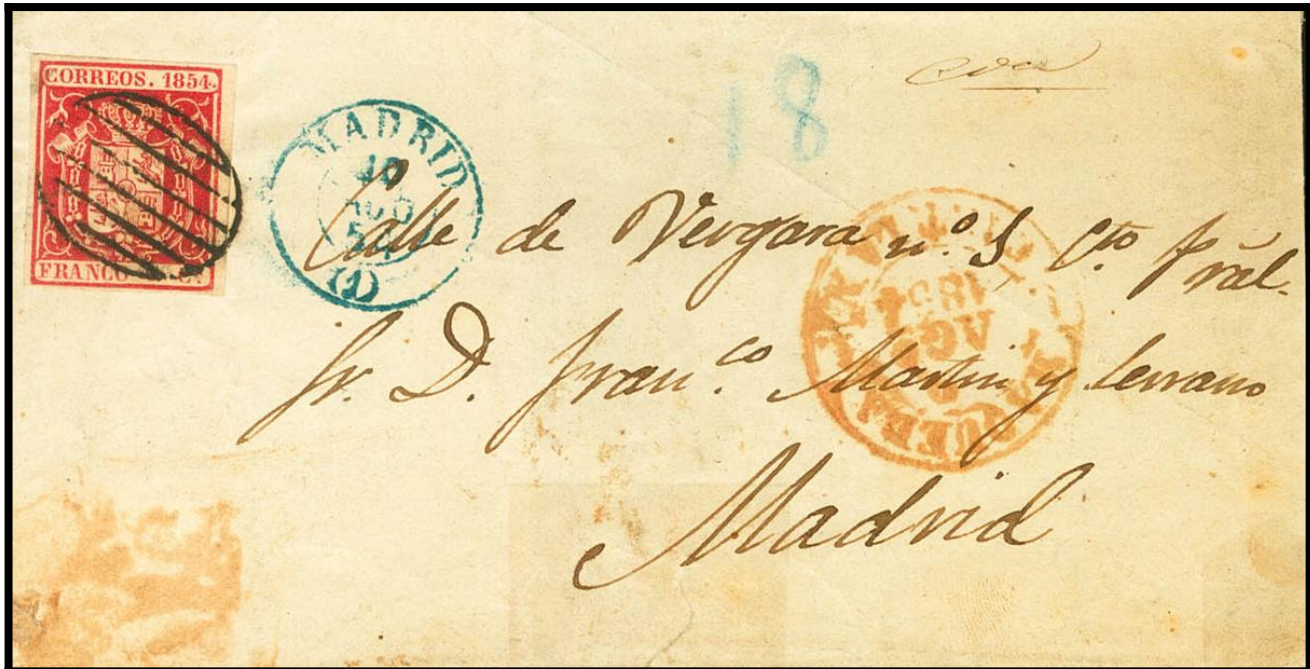 CORREOS. 1854.
FRANCO
MADRID
AGO
(1)
18
Calle de Vergara nº. 5 Cto. pral.
Sr. D. Franco. Martin y Serrano
Madrid
1854
AGO